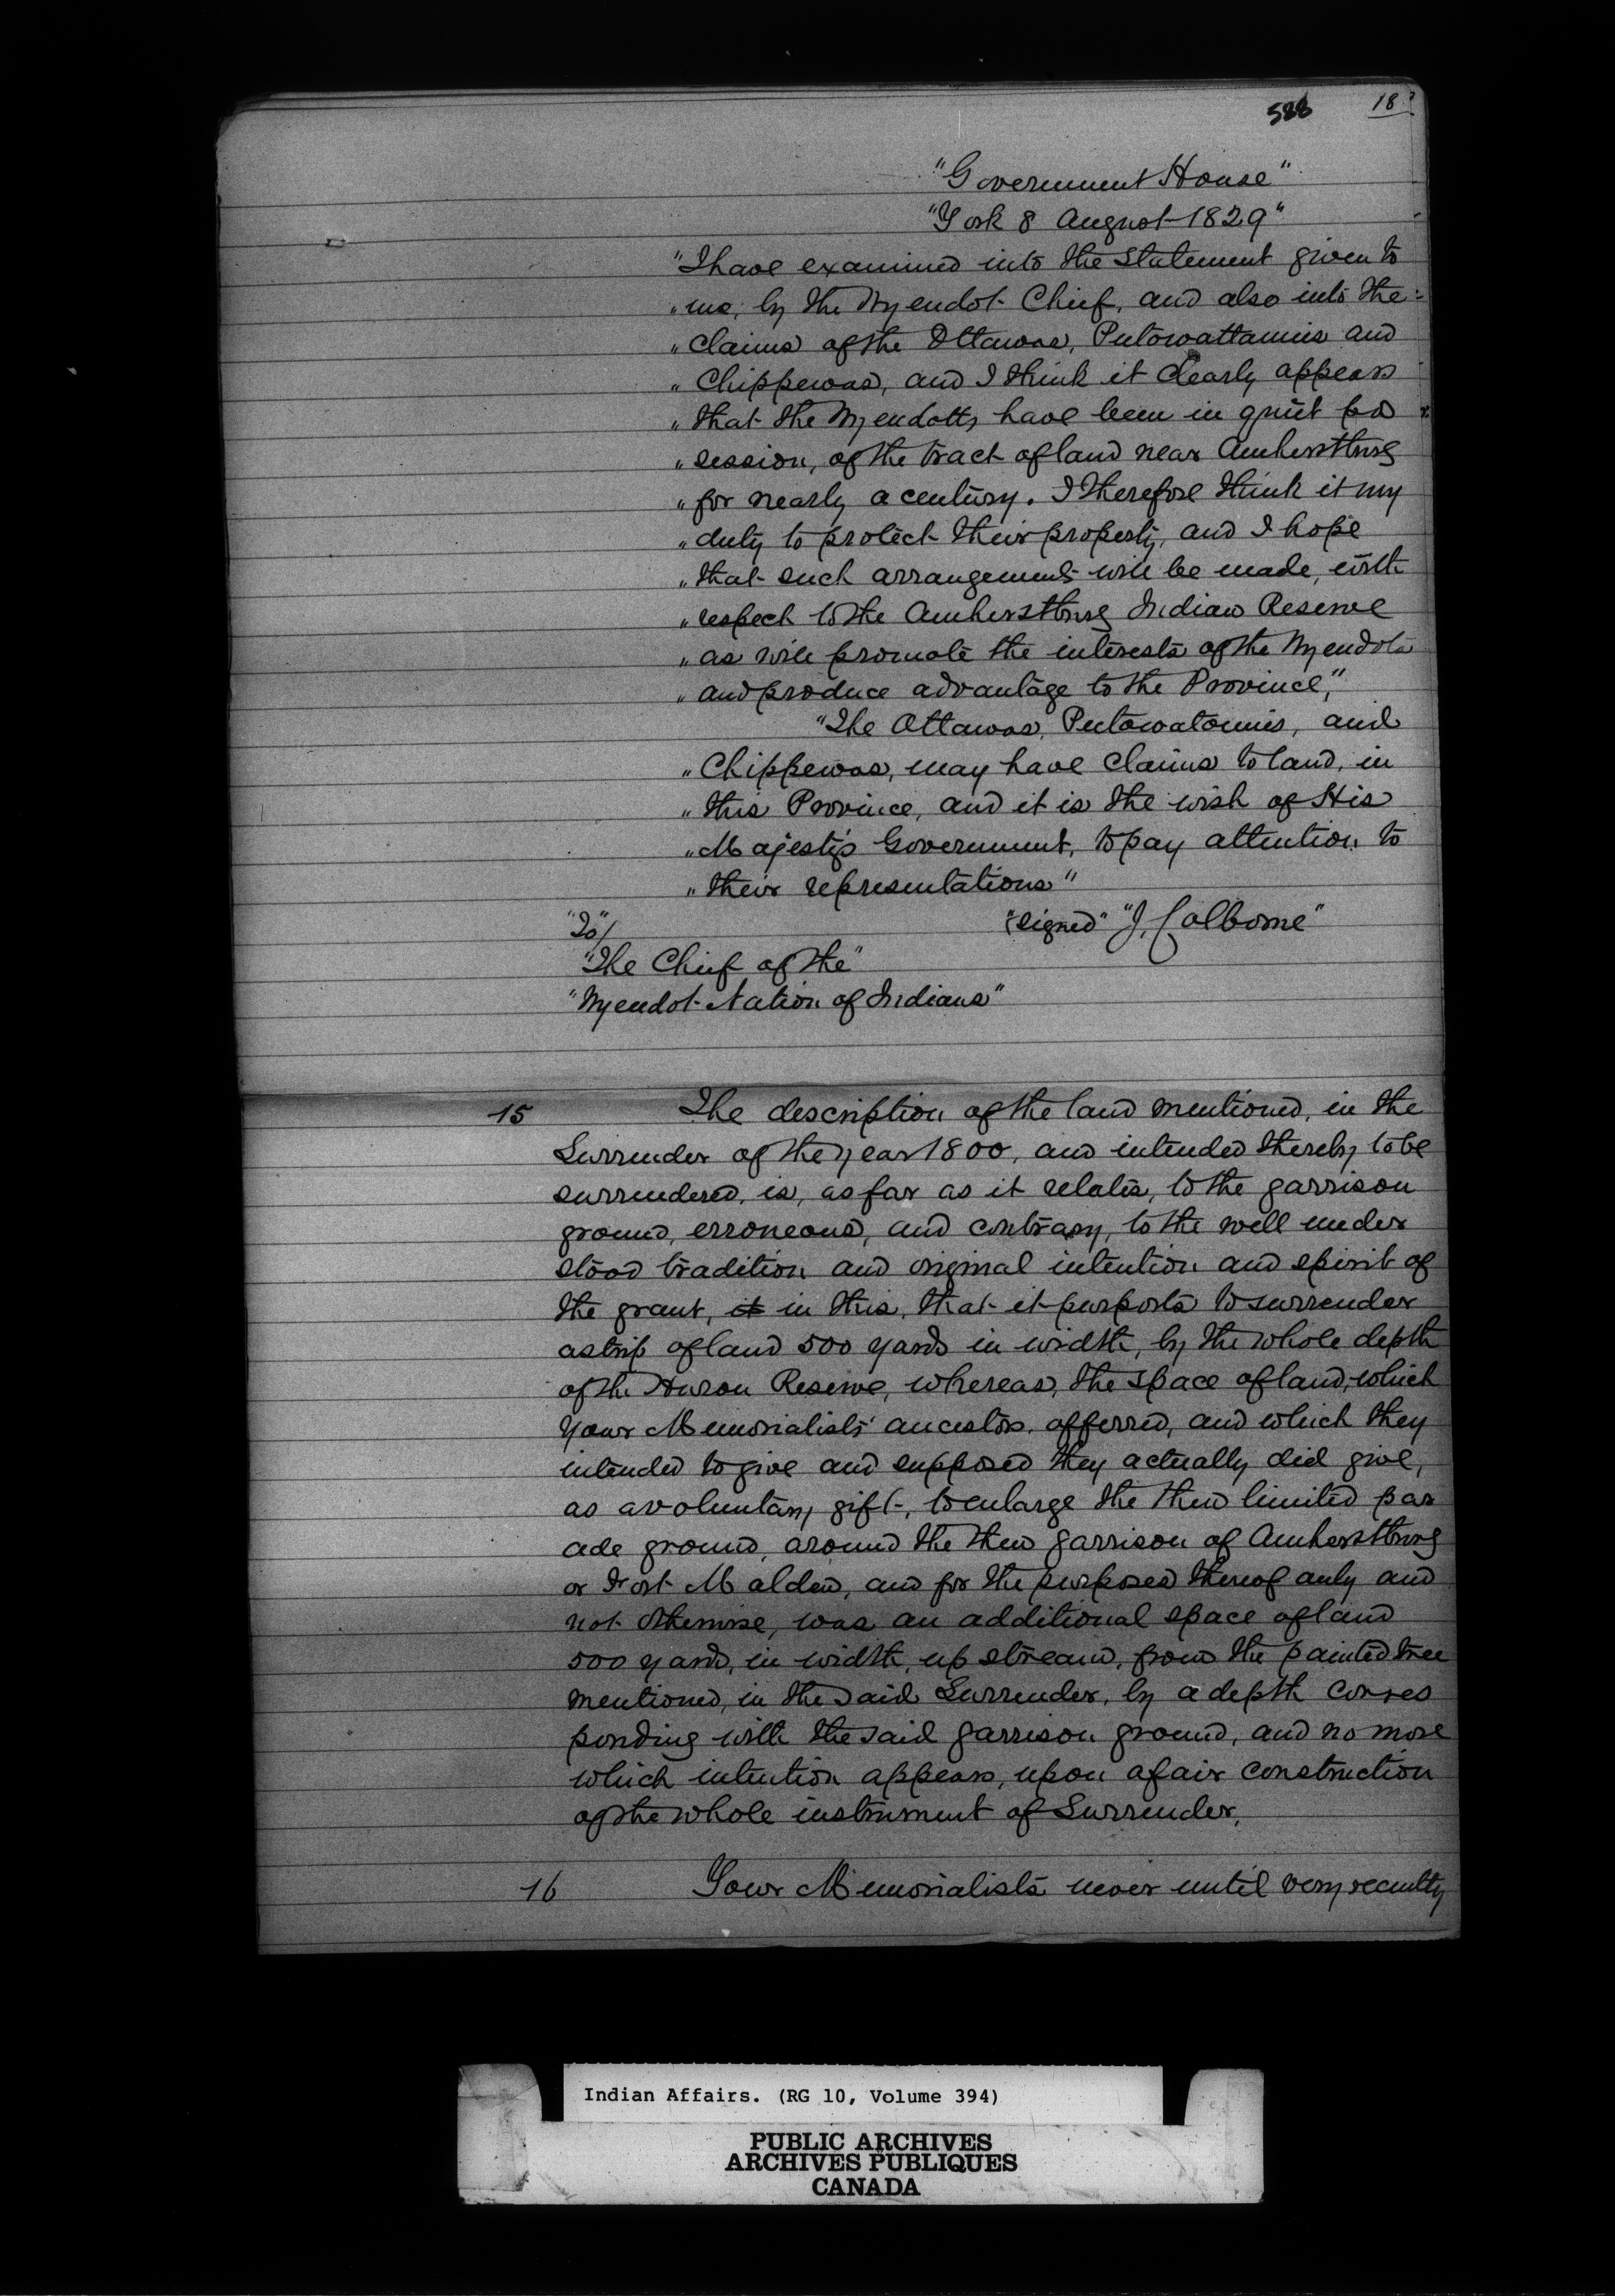 588
"Government House"
"York 8 August 1829"
"I have examined into the Statement given to
" me, by the Wyendot Chief, and also into the
" claims of the Ottawas, Putowattamies and
" Chippewas, and I think it clearly appears
" that the Wyendotts have been in quiet pos
" session, of the tract of land near Amherstburg
" for nearly a century. I therefore think it my
" duty to protect their property, and I hope
" that such arrangements will be made, with
" respect to the Amherstburg Indian Reserve
" as will promote the interests of the Wyendots
" and produce advantage to the Province,"
"The Ottawas, Putowatomies, and
" Chippewas, may have claims to land, in
" this Province, and it is the wish of His
" Majesty's Government, to pay attention to
" their representations"
"To"/ "signed" "J. Colborne"
"The Chief of the"
"Wyendot Nation of Indians"
15 The description of the land mentioned, in the
Surrender of the year 1800, and intended thereby to be
surrendered, is, as far as it relates, to the garrison
ground, erroneous, and contrary, to the well under
stood tradition and original intention and spirit of
the grant, it in this, that it purports to surrender
a strip of land 500 yards in width, by the whole depth
of the Huron Reserve, whereas, the space of land, which
Your Memorialists' ancestors, offerred, and which they
intended to give and supposed they actually did give,
as a voluntary gift, to enlarge the then limited par
ade ground, around the then garrison of Amherstburg
or Fort Malden, and for the purposes thereof only and
not otherwise, was an additional space of land
500 yards, in width, up stream, from the painted tree
mentioned, in the said Surrender, by a depth corres
ponding with the said garrison ground, and no more
which intention appears, upon a fair construction
of the whole instrument of Surrender,
16 Your Memorialists never until very recently
Indian Affairs. (RG 10, Volume 394)
PUBLIC ARCHIVES
ARCHIVES PUBLIQUES
CANADA